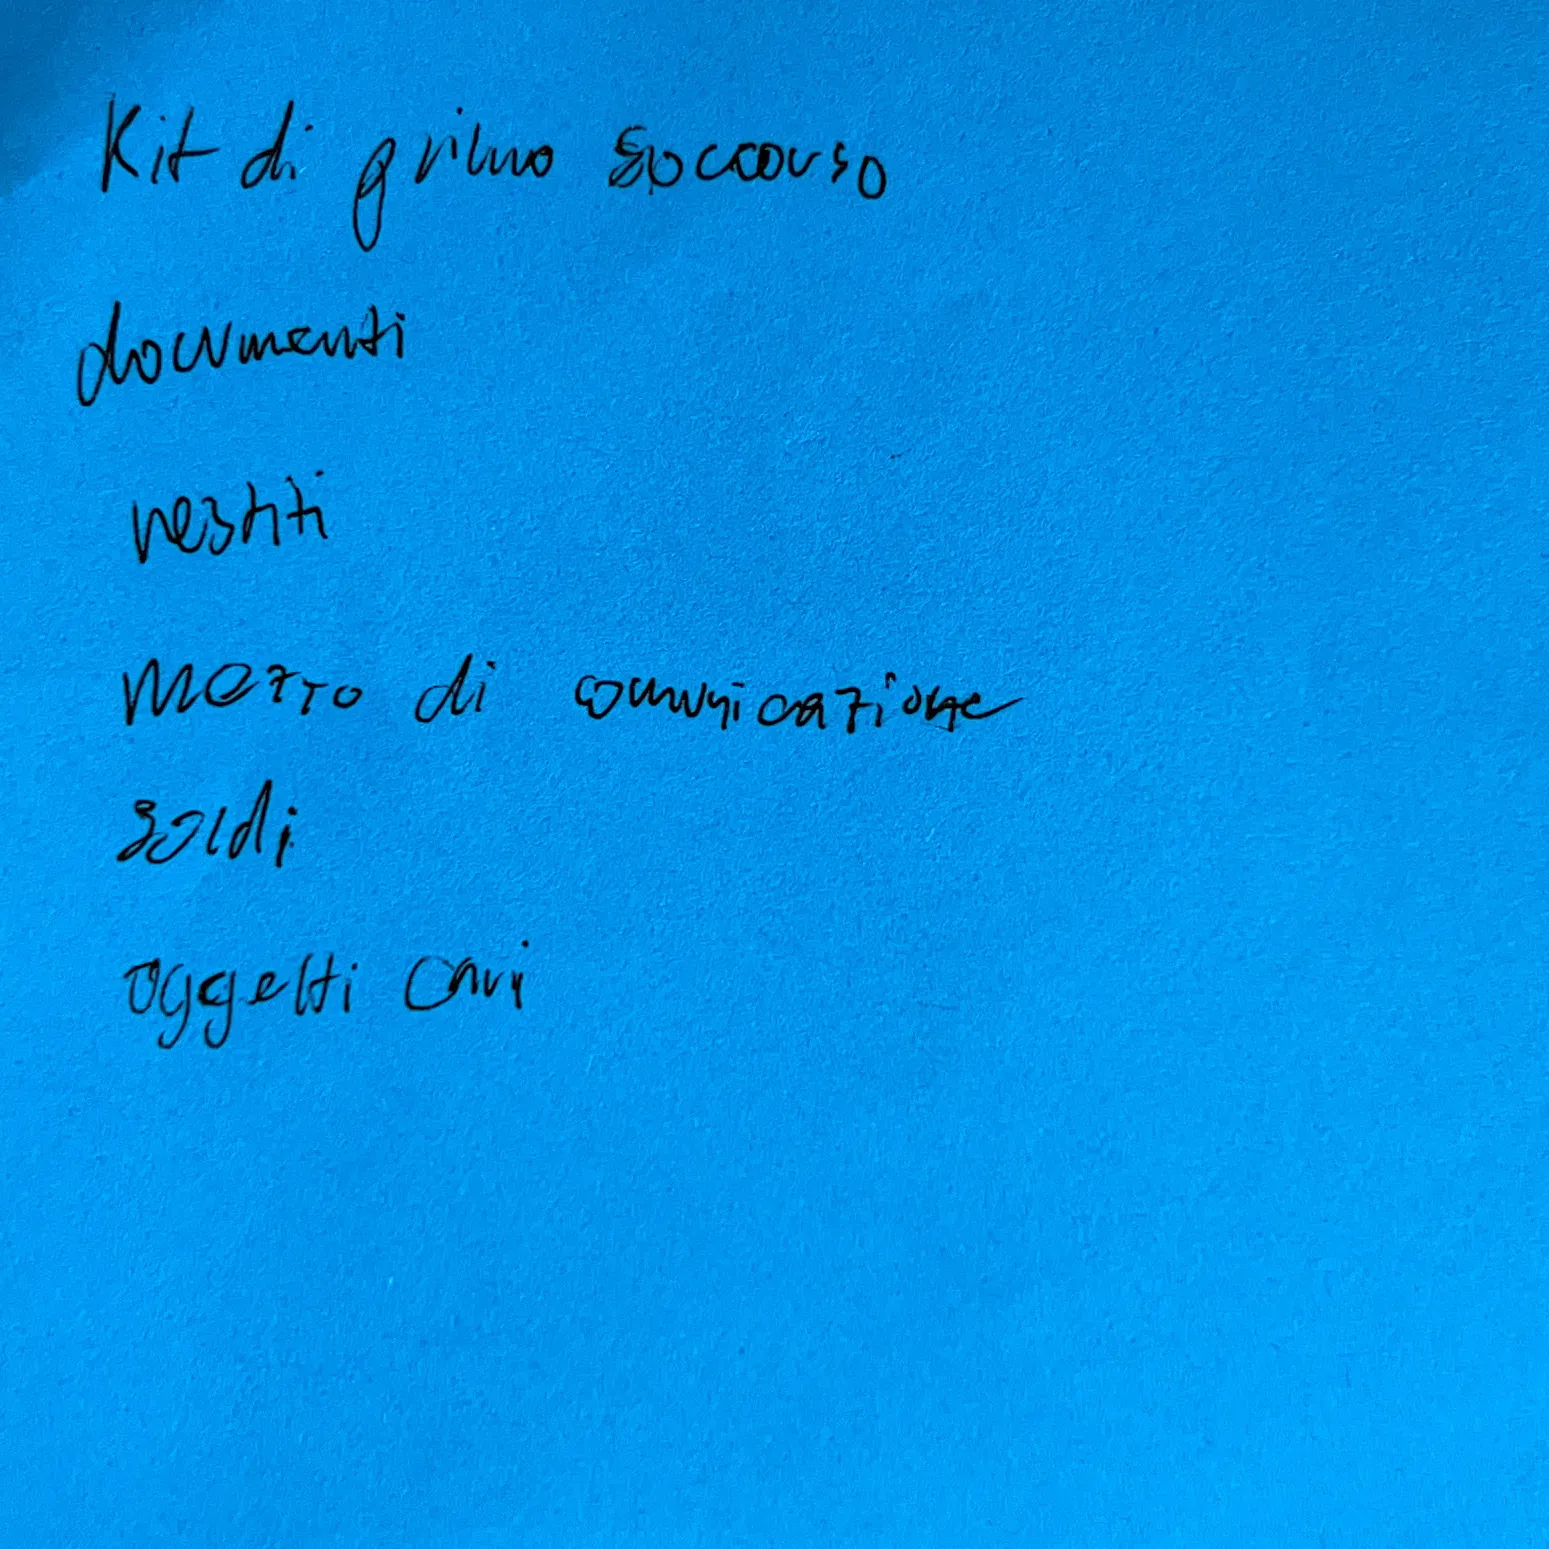 Kit di primo soccorso
documenti
vestiti
mezzo di comunicazione
soldi
oggetti cari